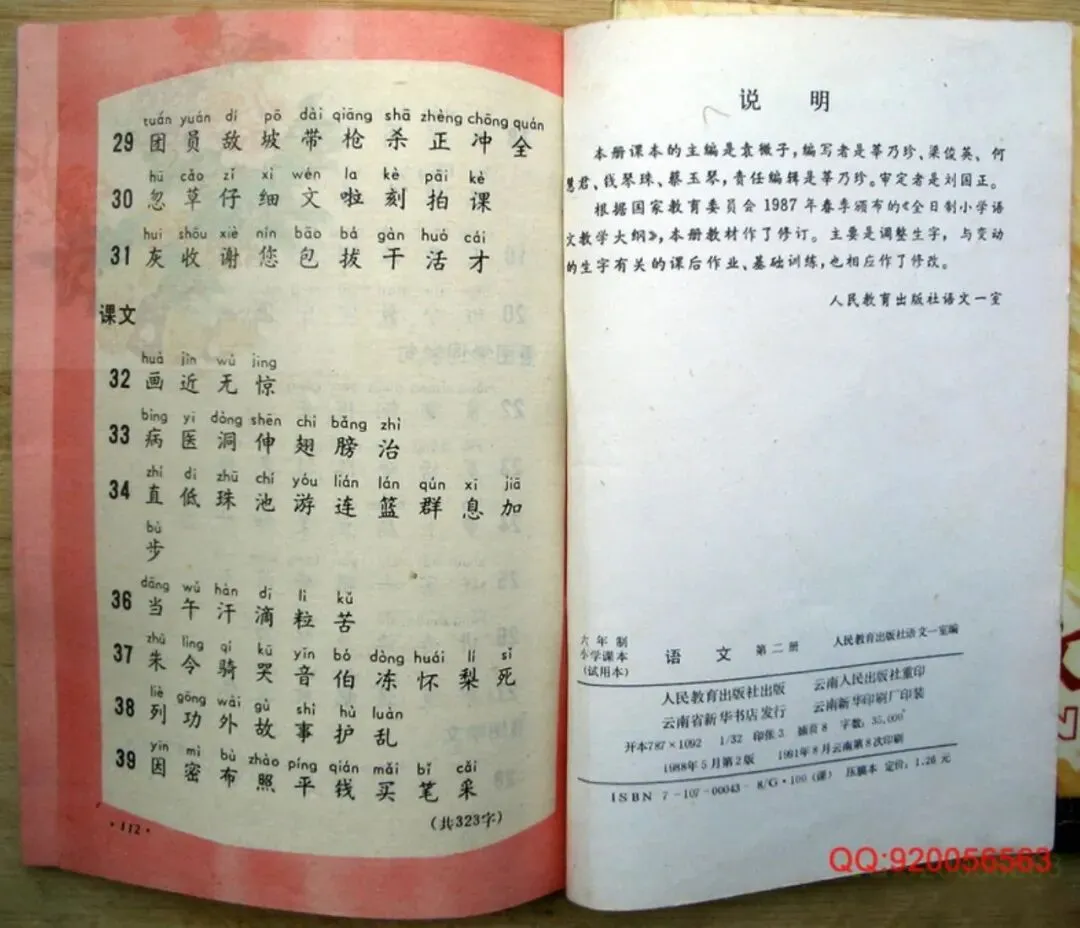 tuán yuán dí pō dài qiāng shā zhèng chōng quán
29 团 员 敌 坡 带 枪 杀 正 冲 全
hū cǎo zǐ xì wén la kè pāi kè
30 忽 草 仔 细 文 啦 刻 拍 课
huī shōu xiè nín bāo bá gàn huó cái
31 灰 收 谢 您 包 拔 干 活 才
课文
huà jìn wú jīng
32 画 近 无 惊
bìng yī dòng shēn chì bǎng zhì
33 病 医 洞 伸 翅 膀 治
zhí dī zhū chí yóu lián lán qún xī jiā
34 直 低 珠 池 游 连 篮 群 息 加
bù
步
dāng wǔ hàn dī lì kǔ
36 当 午 汗 滴 粒 苦
zhū lìng qí kū yīn bó dòng huái lí sǐ
37 朱 令 骑 哭 音 伯 冻 怀 梨 死
liè gōng wài gù shì hù luàn
38 列 功 外 故 事 护 乱
yīn mì bù zhào píng qián mǎi bǐ cǎi
39 因 密 布 照 平 钱 买 笔 采
(共323字)
·112·
说 明
本册课本的主编是袁微子,编写者是莘乃珍、梁俊英、何
慧君、钱琴珠、蔡玉琴,责任编辑是莘乃珍。审定者是刘国正。
根据国家教育委员会 1987 年春季颁布的《全日制小学语
文教学大纲》,本册教材作了修订。主要是调整生字,与变动
的生字有关的课后作业、基础训练,也相应作了修改。
人民教育出版社语文一室
六年制
小学课本
(试用本)
语 文 第二册 人民教育出版社语文一室编
人民教育出版社出版 云南人民出版社重印
云南省新华书店发行 云南新华印刷厂印装
开本787×1092 1/32 印张 3 插页 8 字数:35,000
1988年5月第2版 1991年8月云南第8次印刷
ISBN 7-107-00043-8/G·100(课) 压膜本 定价:1.26 元
QQ:920056563